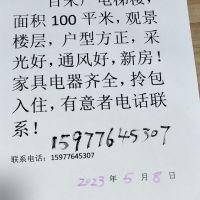 面积 100 平米，观景
楼层，户型方正，采
光好，通风好，新房！
家具电器齐全，拎包
入住，有意者电话联
系！
15977645307
联系电话：15977645307
2023 年 5 月 8 日